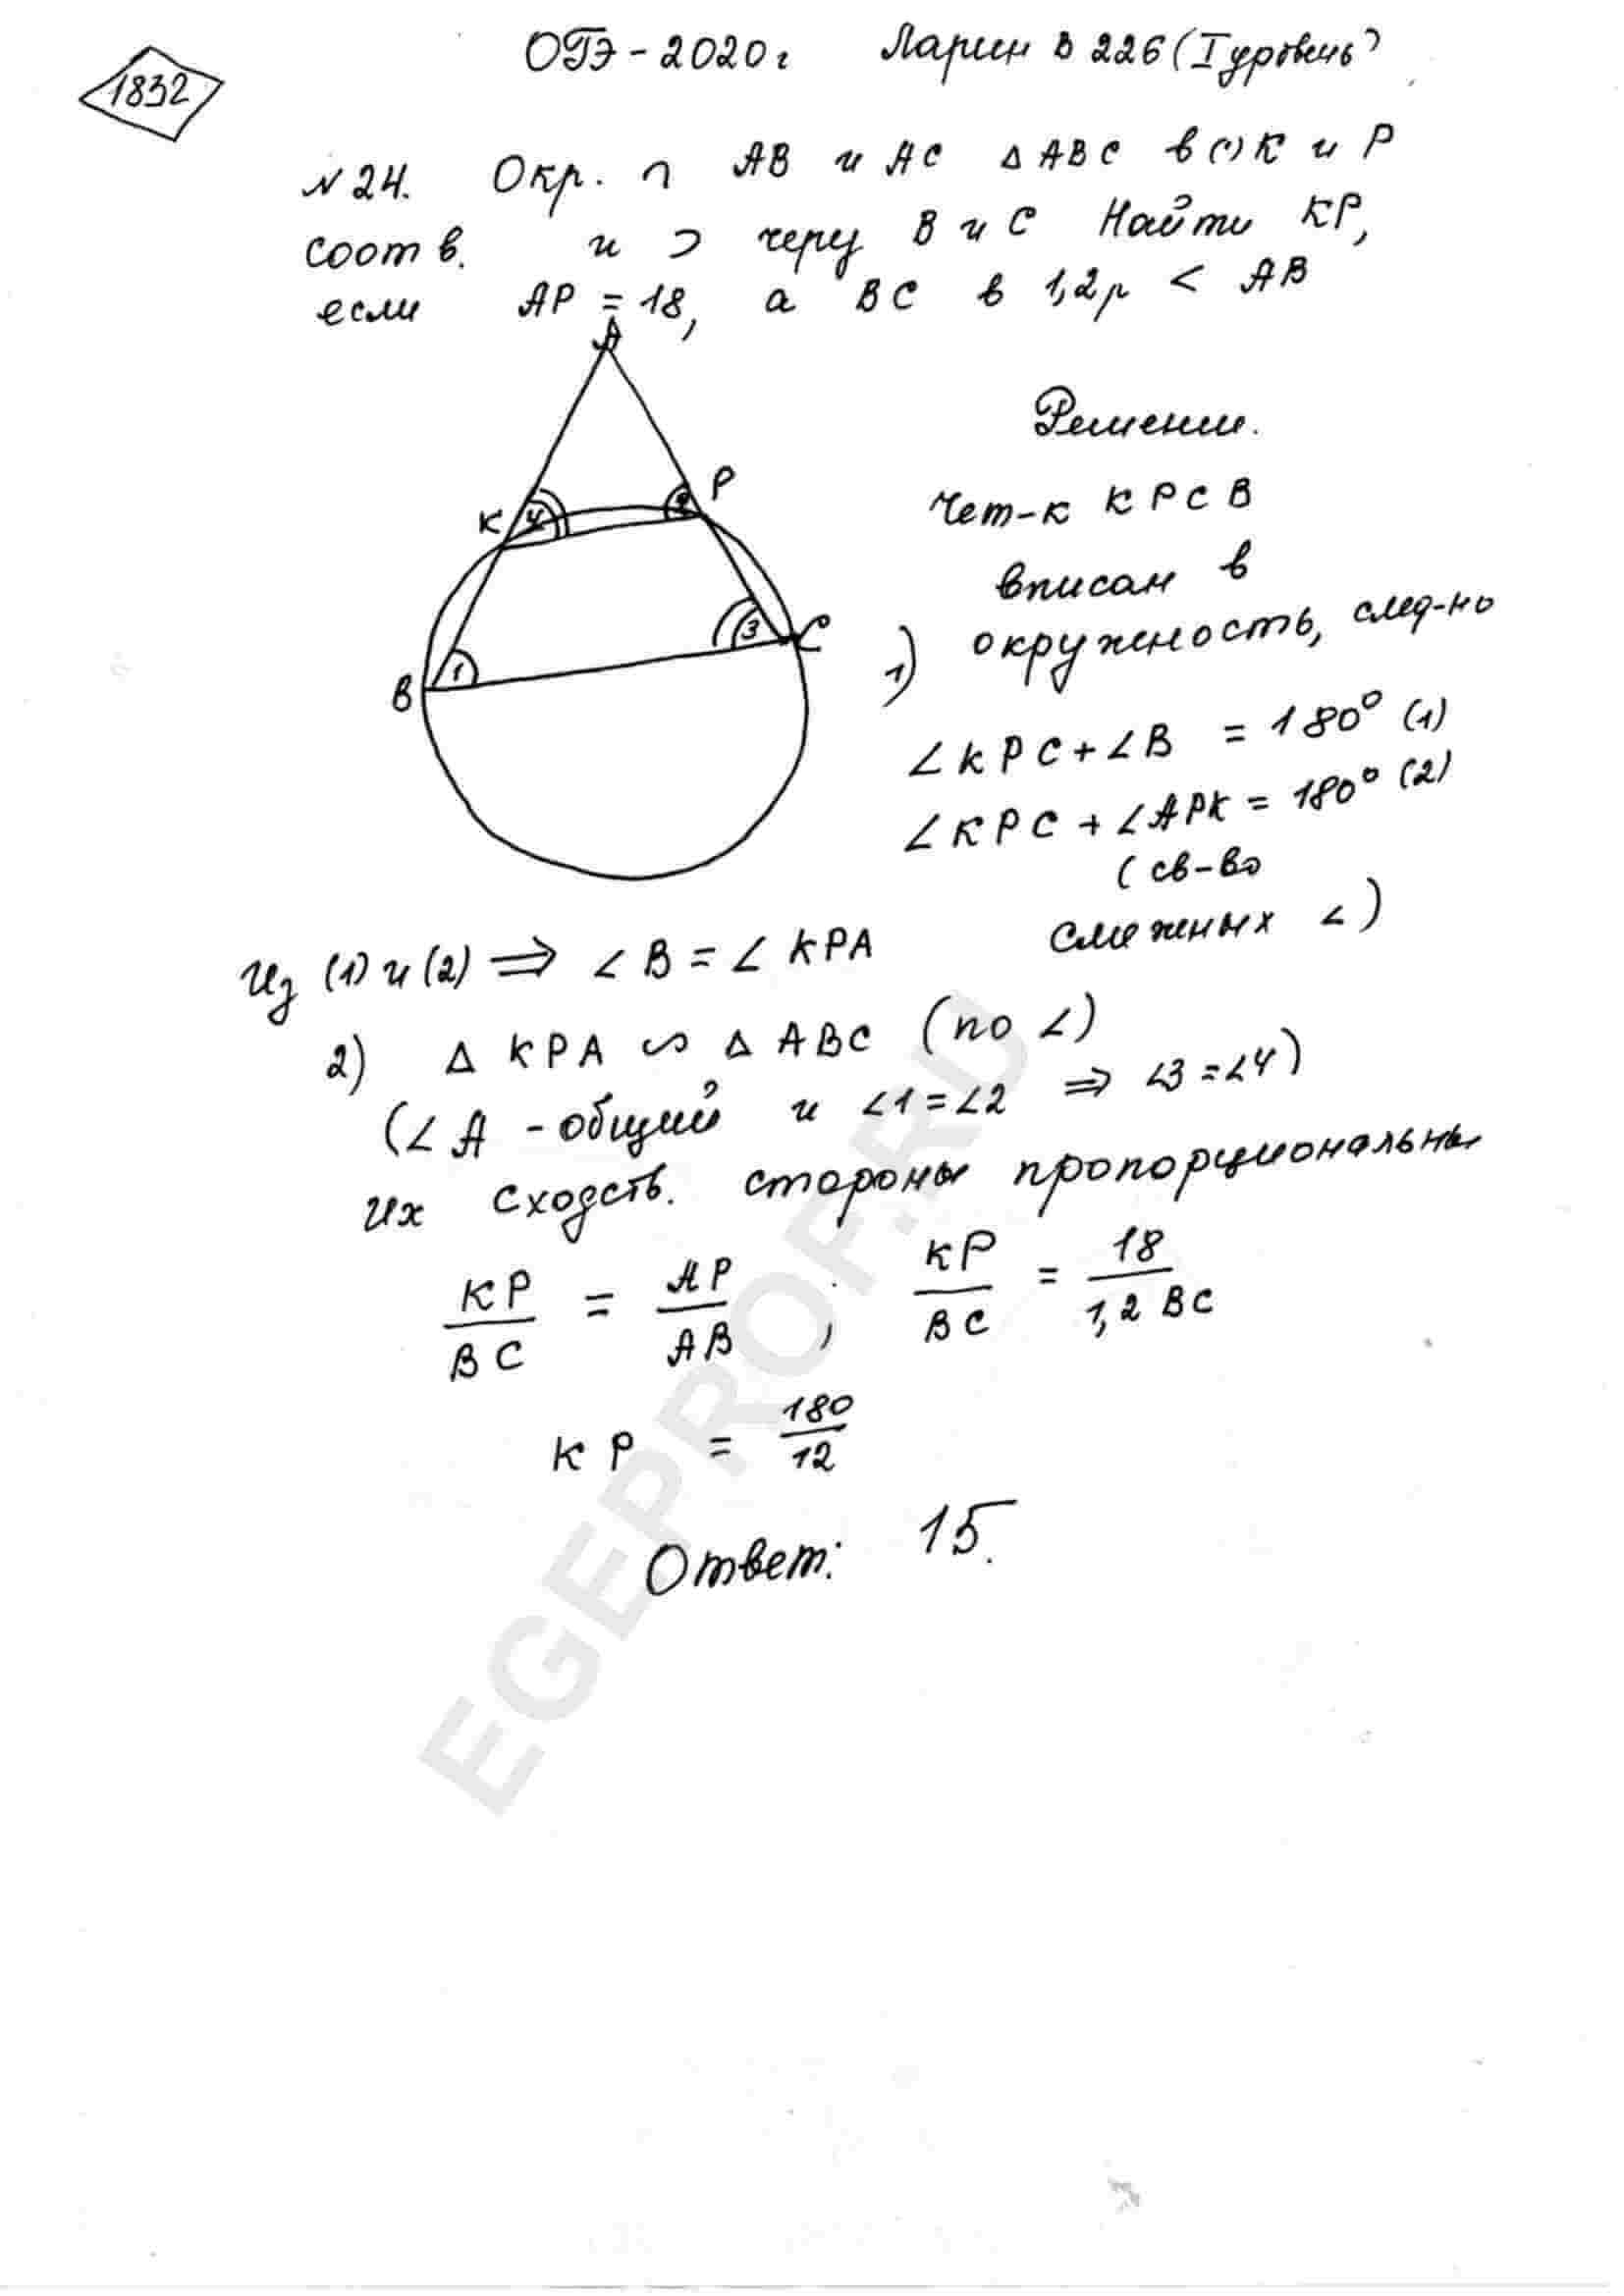 1832
ОГЭ - 2020г Ларин В 226 (I уровень)
№ 24. Окр. ∩ AB и AC △ ABC в (·) K и P
соотв. и ⊃ через B и C Найти KP,
если AP = 18, а BC в 1,2р < AB
A
K
P
4
2
3
C
B
1
Решение.
Чет-к KPCB
вписан в
1) окружность, след-но
∠KPC + ∠B = 180° (1)
∠KPC + ∠APK = 180° (2)
(св-во
смежных ∠)
Из (1) и (2) ⟹ ∠B = ∠KPA
2) △ KPA ∽ △ ABC (по ∠)
(∠A - общий и ∠1 = ∠2 ⇒ ∠3 = ∠4)
Их сходств. стороны пропорциональны
KP/BC = AP/AB , KP/BC = 18/1,2 BC
KP = 180/12
Ответ: 15.
EGEPROF.RU